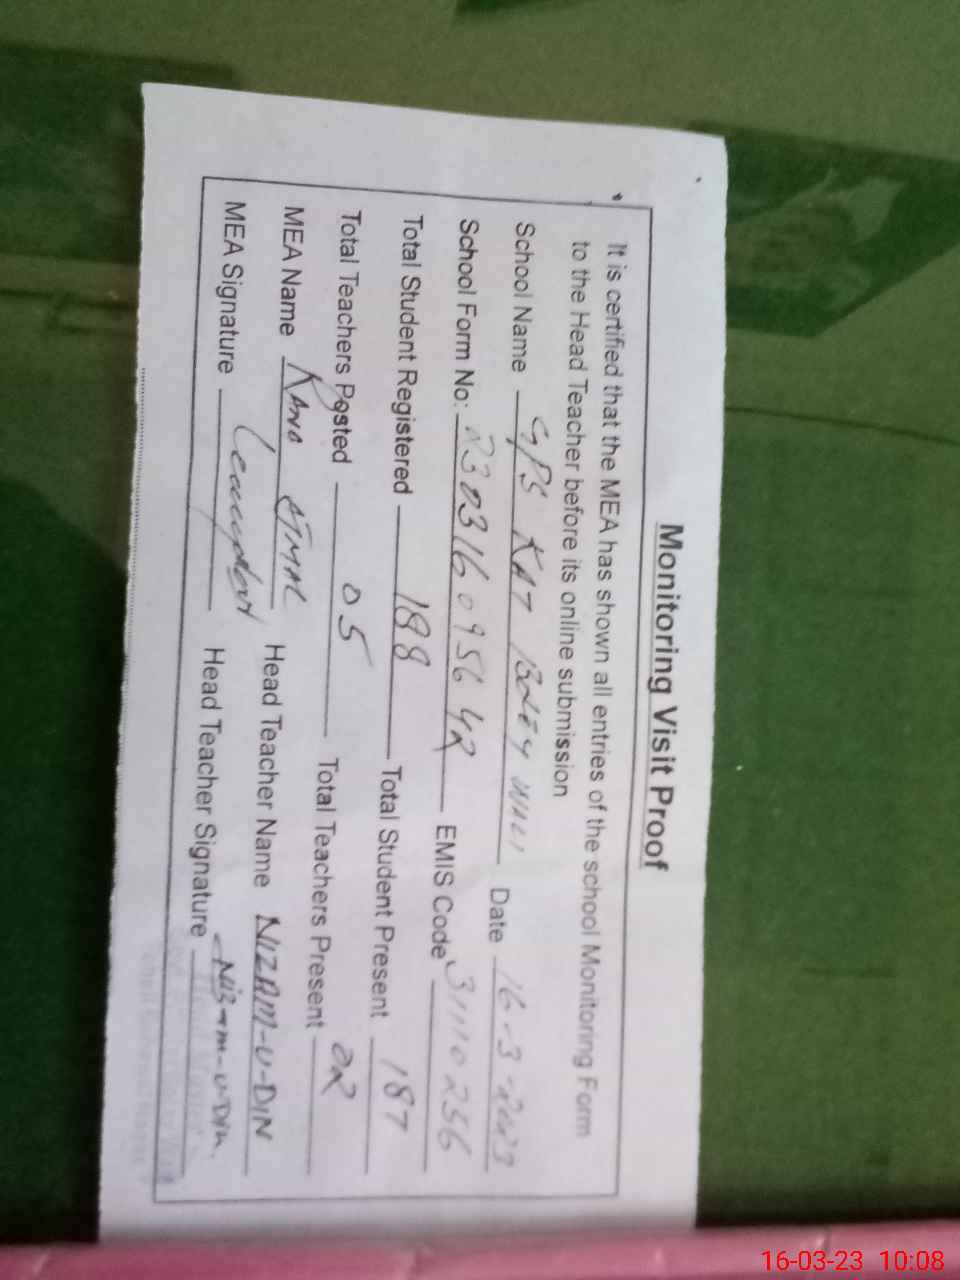 Monitoring Visit Proof
It is certified that the MEA has shown all entries of the school Monitoring Form
to the Head Teacher before its online submission
School Name GPS KAT Date 16-3-2023
School Form No: 230316095642 EMIS Code 31110256
Total Student Registered 188 Total Student Present 187
Total Teachers Posted 05 Total Teachers Present 02
MEA Name Head Teacher Name NIZAM-U-DIN
MEA Signature Head Teacher Signature Nizam-u-Din.
16-03-23 10:08